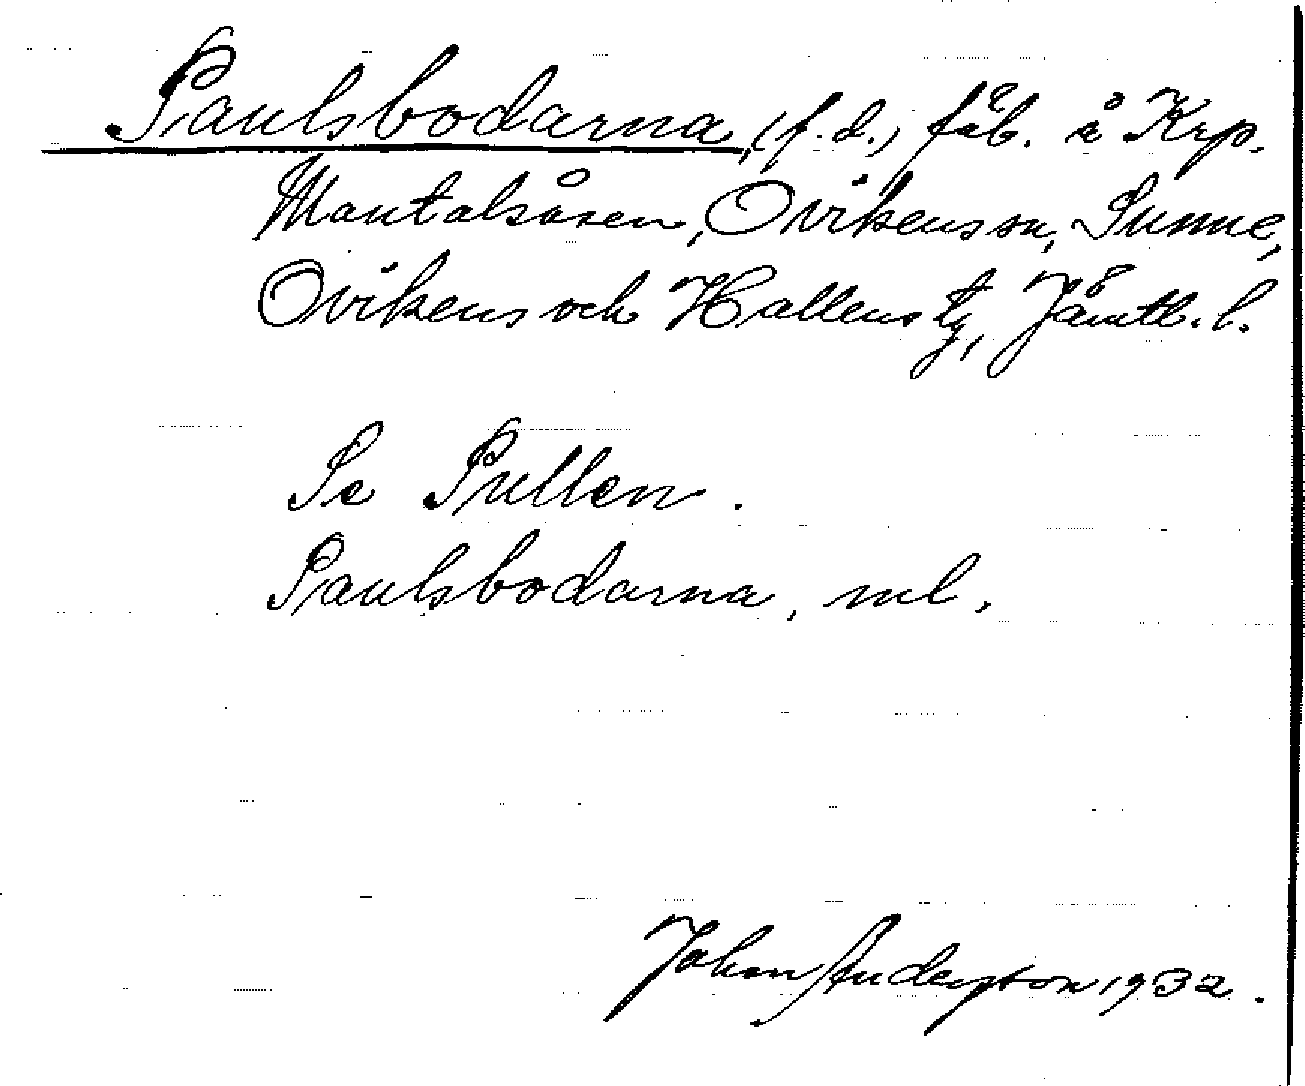 Paulsbodarna, (f. d.) fäb. å Krp.
Mantalsåsen, Ovikens sn, Sunne,
Ovikens och Hallens tg, Jämtl. l.
Se Pullen.
Paulsbodarna, ml.
Johan Anderston 1932.